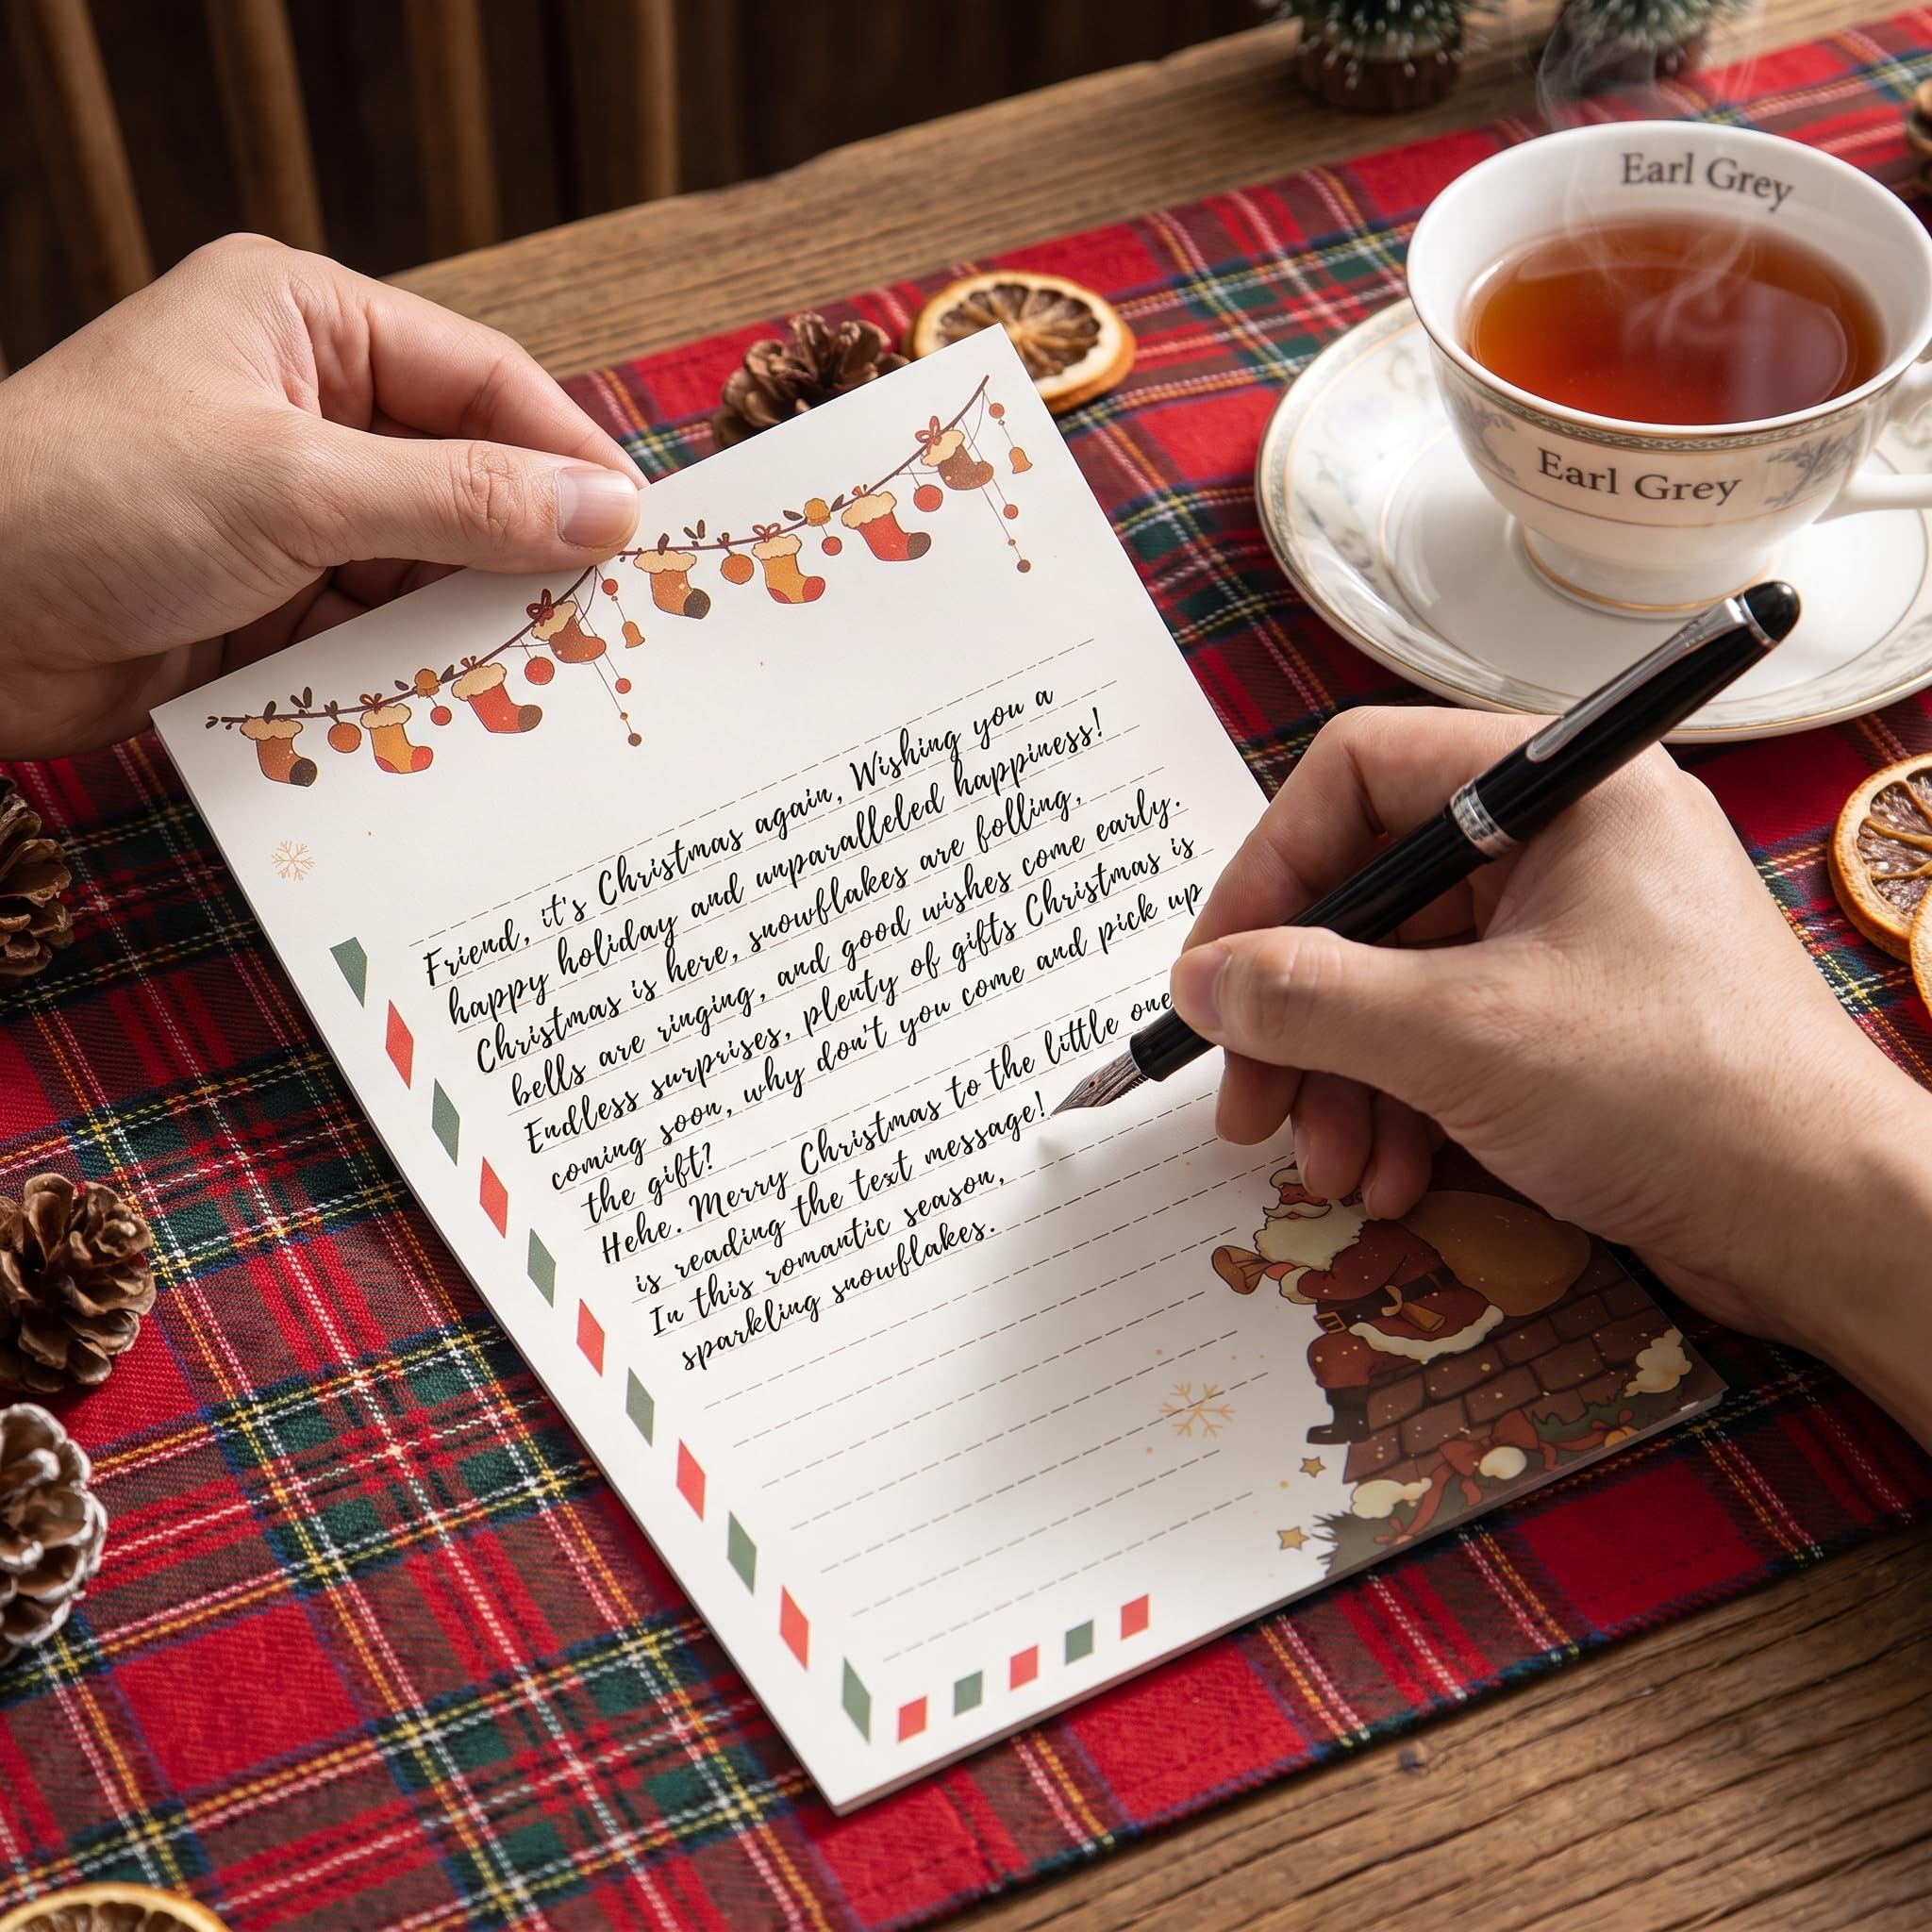 Earl Grey
Earl Grey
Friend, it's Christmas again, Wishing you a
happy holiday and unparalleled happiness!
Christmas is here, snowflakes are folling,
bells are ringing, and good wishes come early.
Endless surprises, plenty of gifts Christmas is
coming soon, why don't you come and pick up
the gift?
Hehe. Merry Christmas to the little one
is reading the text message!
In this romantic season,
sparkling snowflakes.